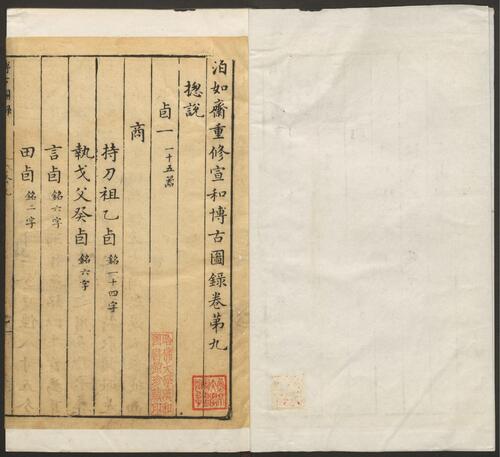 泊如齋重修宣和博古圖錄卷第九
揔說
卣一 一十五器
商
持刀祖乙卣 銘一十四字
執戈父癸卣 銘六字
言卣 銘六字
田卣 銘二字